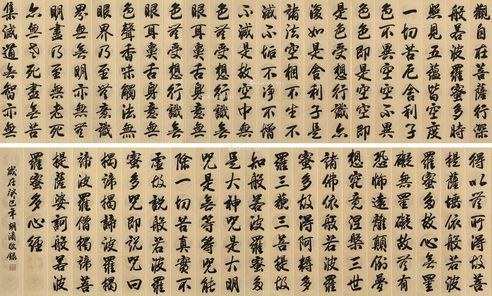 觀自在菩薩行深
般若波羅蜜多時
照見五蘊皆空度
一切苦厄舍利子
色不異空空不異
色色即是空空即
是色受想行識亦
復如是舍利子是
諸法空相不生不
滅不垢不淨不增
不減是故空中無
色無受想行識無
眼耳鼻舌身意無
色聲香味觸法無
眼界乃至無意識
界無無明亦無無
明盡乃至無老死
亦無老死盡無苦
集滅道無智亦無
得以無所得故菩
提薩埵依般若波
羅蜜多故心無罣
礙無罣礙故無有
恐怖遠離顛倒夢
想究竟涅槃三世
諸佛依般若波羅
蜜多故得阿耨多
羅三藐三菩提故
知般若波羅蜜多
是大神咒是大明
咒是無等等咒能
除一切苦真實不
虛故說般若波羅
蜜多咒即說咒曰
揭諦揭諦波羅揭
諦波羅僧揭諦菩
提薩婆訶般若波
羅蜜多心經